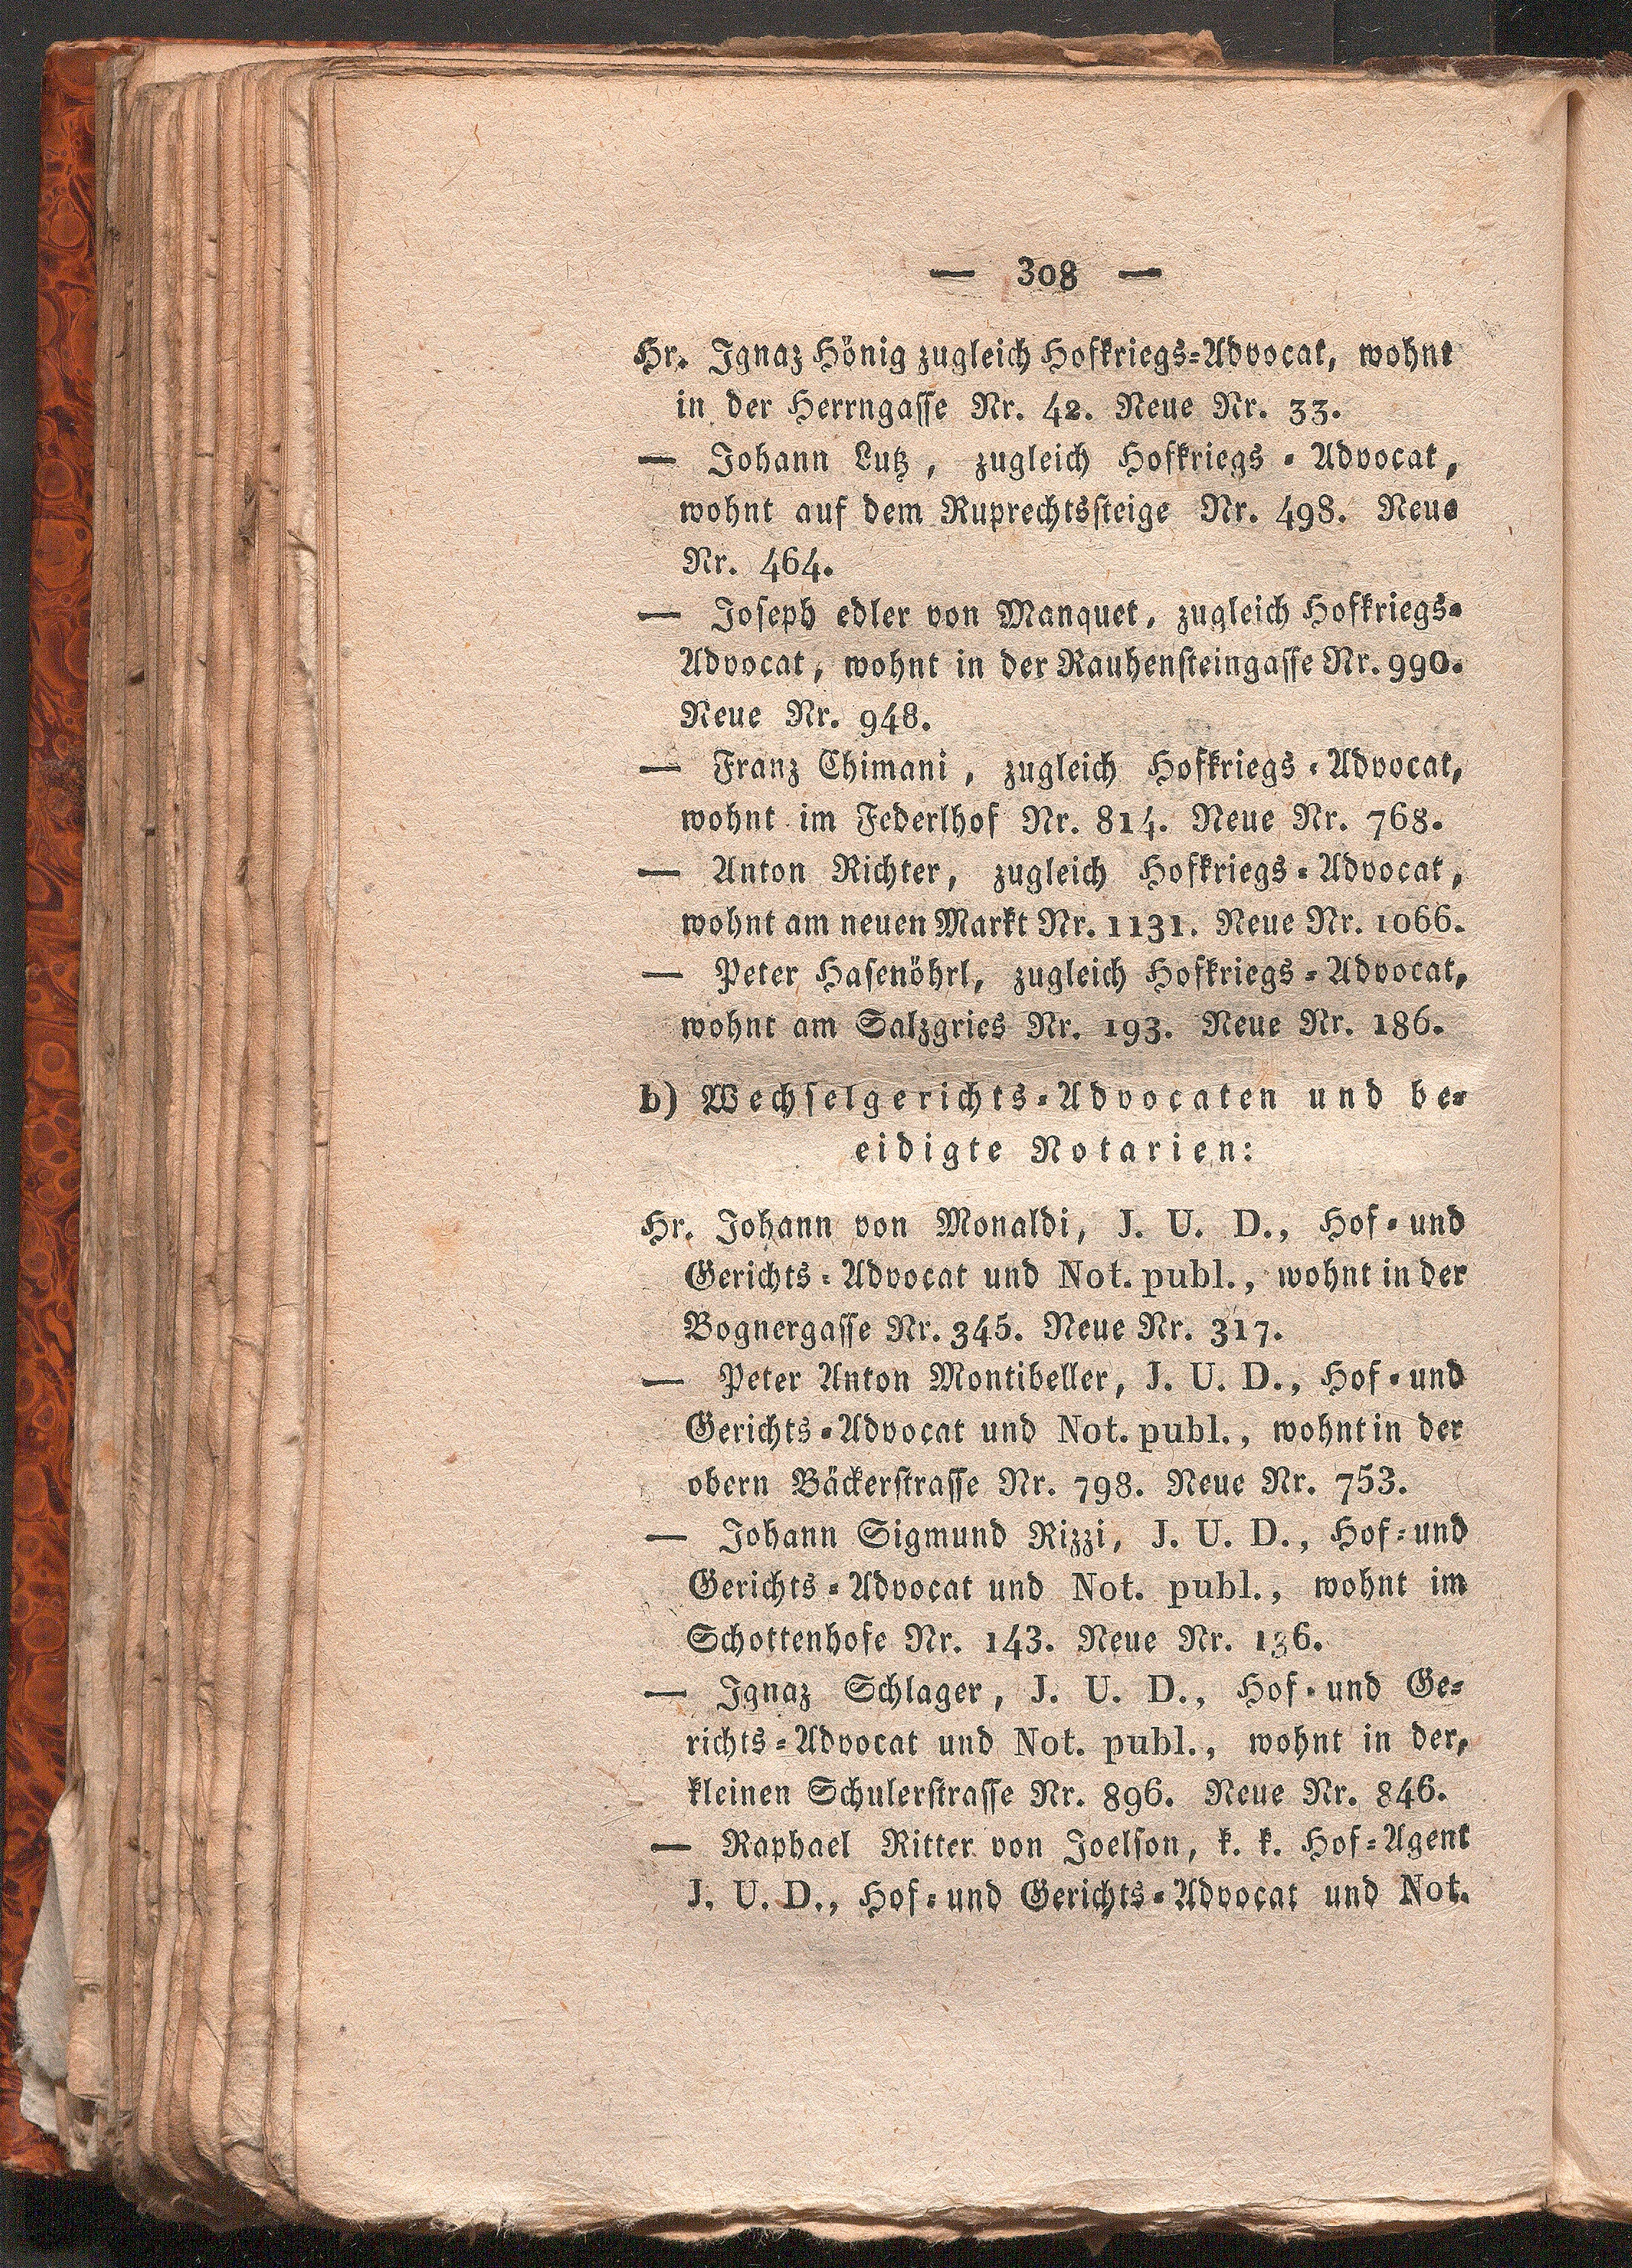 — 308 —
Hr. Ignaz Hönig zugleich Hofkriegs-Advocat, wohnt
in der Herrngasse Nr. 42. Neue Nr. 33.
— Johann Lutz, zugleich Hofkriegs-Advocat,
wohnt auf dem Ruprechtssteige Nr. 498. Neue
Nr. 464.
— Joseph edler von Manquet, zugleich Hofkriegs-
Advocat, wohnt in der Rauhensteingasse Nr. 990.
Neue Nr. 948.
— Franz Chimani, zugleich Hofkriegs-Advocat,
wohnt im Federlhof Nr. 814. Neue Nr. 768.
— Anton Richter, zugleich Hofkriegs-Advocat,
wohnt am neuen Markt Nr. 1131. Neue Nr. 1066.
— Peter Hasenöhrl, zugleich Hofkriegs-Advocat,
wohnt am Salzgries Nr. 193. Neue Nr. 186.
b) Wechselgerichts-Advocaten und be-
eidigte Notarien:
Hr. Johann von Monaldi, J. U. D., Hof- und
Gerichts-Advocat und Not. publ., wohnt in der
Bognergasse Nr. 345. Neue Nr. 317.
— Peter Anton Montibeller, J. U. D., Hof- und
Gerichts-Advocat und Not. publ., wohnt in der
obern Bäckerstrasse Nr. 798. Neue Nr. 753.
— Johann Sigmund Rizzi, J. U. D., Hof- und
Gerichts-Advocat und Not. publ., wohnt im
Schottenhofe Nr. 143. Neue Nr. 136.
— Ignaz Schlager, J. U. D., Hof- und Ge-
richts-Advocat und Not. publ., wohnt in der,
kleinen Schulerstrasse Nr. 896. Neue Nr. 846.
— Raphael Ritter von Joelson, k. k. Hof-Agent
J. U. D., Hof- und Gerichts-Advocat und Not.